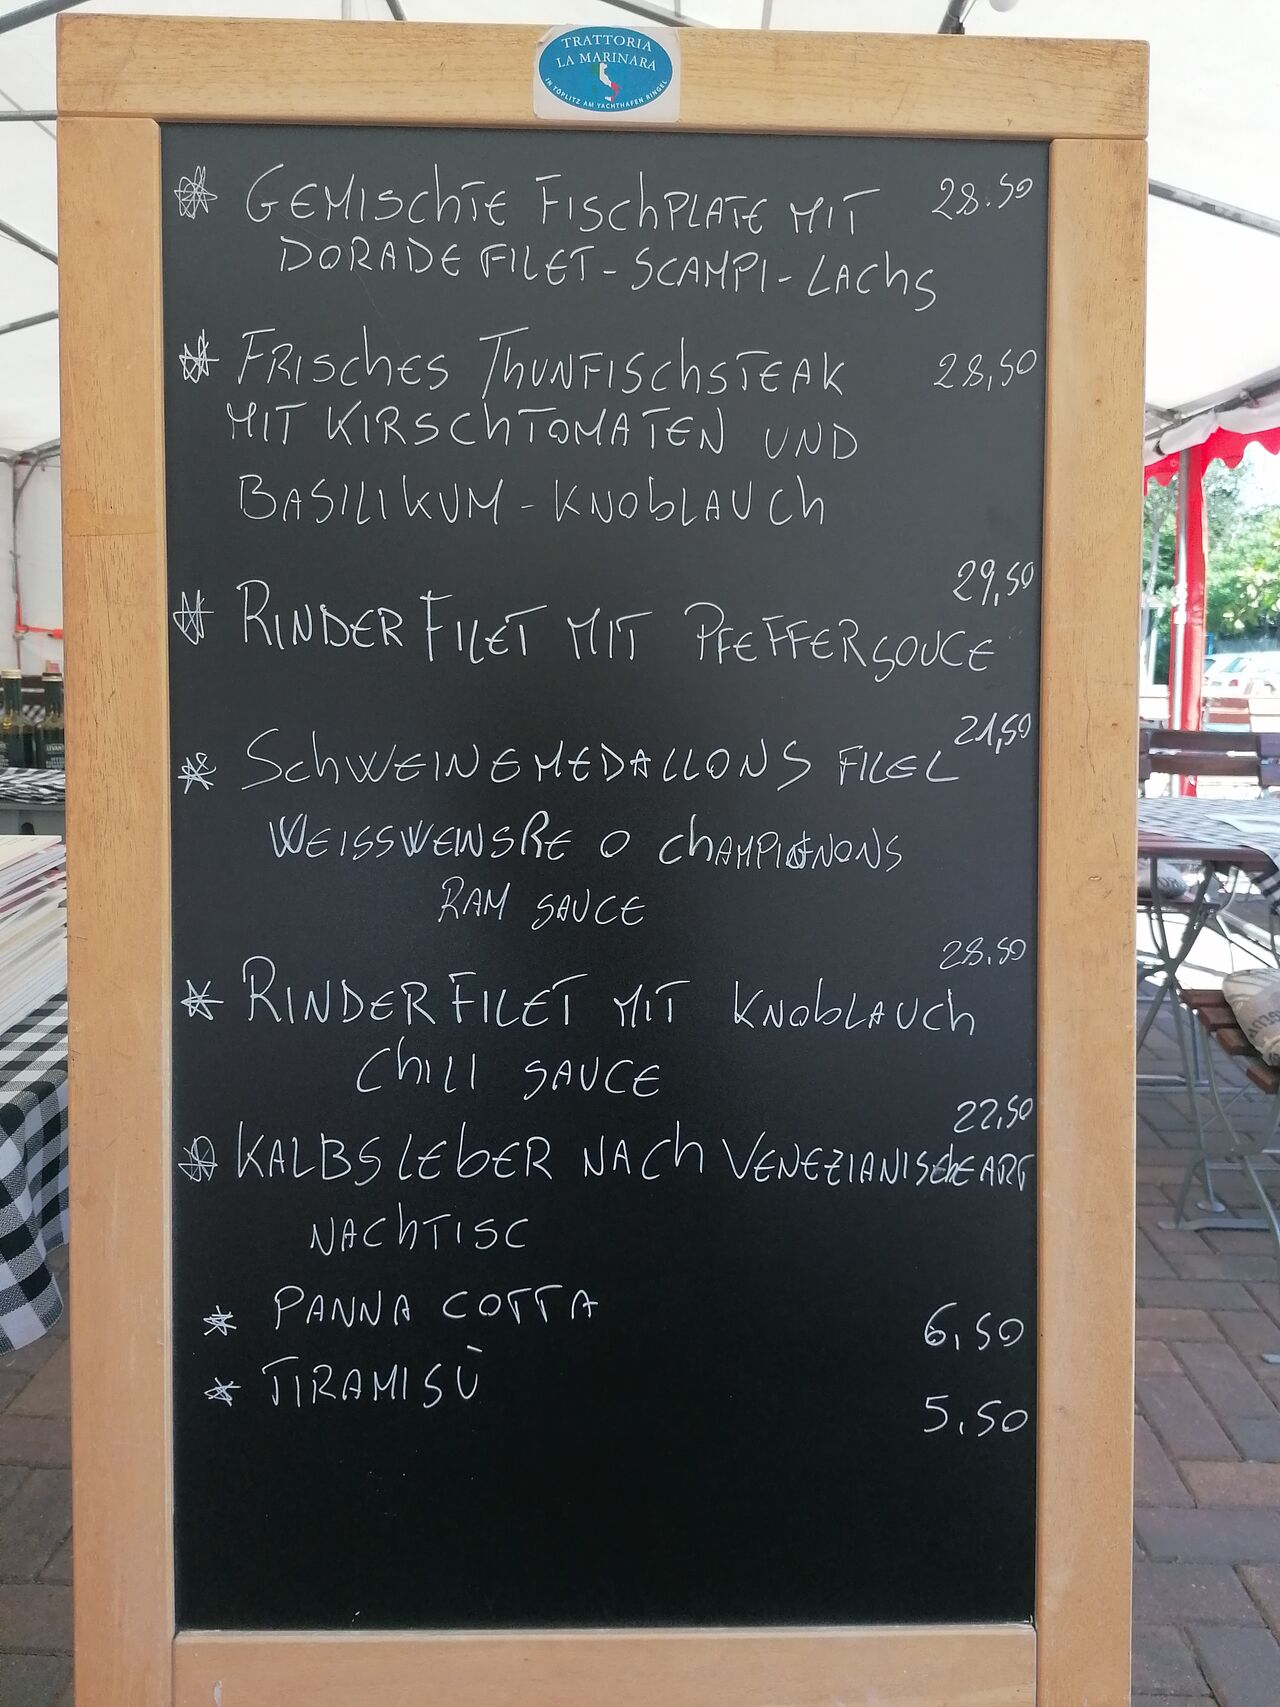 TRATTORIA
LA MARINARA
IN TÖPLITZ AM YACHTHAFEN RINGEL
GEMISCHTE FISCHPLATE MIT 28.50
DORADE FILET - SCAMPI - LACHS
FRISCHES THUNFISCHSTEAK 28,50
MIT KIRSCHTOMATEN UND
BASILIKUM - KNOBLAUCH
29,50
RINDER FILET MIT PFEFFERSOUCE
21,50
SCHWEINEMEDALLONS FILEL
WEISSWEINSRE O CHAMPIGNONS
RAM SAUCE
28.50
RINDER FILET MIT KNOBLAUCH
CHILI SAUCE
22,50
KALBSLEBER NACH VENEZIANISCHE ART
NACHTISC
PANNA COTTA 6,50
TIRAMISÙ 5,50